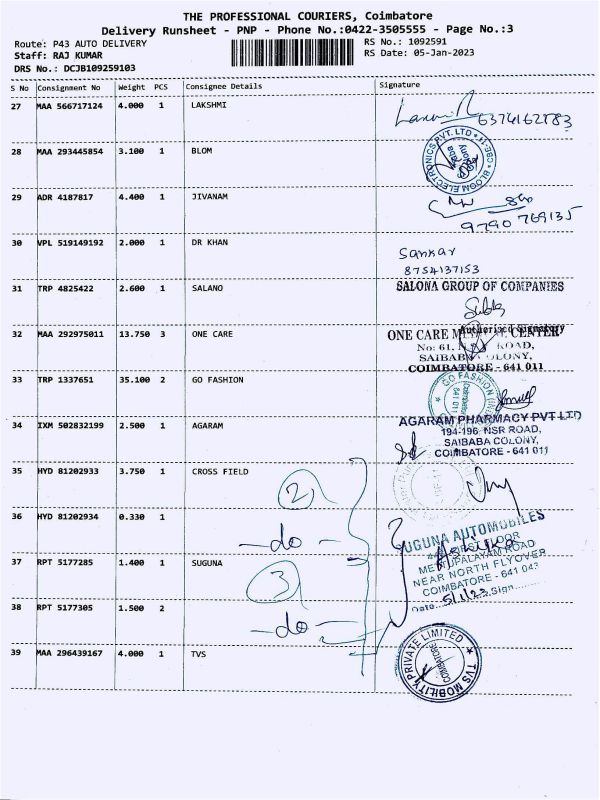 THE PROFESSIONAL COURIERS, Coimbatore
Delivery Runsheet - PNP - Phone No.:0422-3505555 - Page No.:3
Route: P43 AUTO DELIVERY
RS No.: 1092591
Staff: RAJ KUMAR
RS Date: 05-Jan-2023
DRS No.: DCJB109259103
S No Consignment No Weight PCS Consignee Details Signature
27 MAA 566717124 4.000 1 LAKSHMI
6374162783
28 MAA 293445854 3.100 1 BLOM
BLOOM ELECTRONICS PVT. LTD CBE-11
29 ADR 4187817 4.400 1 JIVANAM
9790 769135
30 VPL 519149192 2.000 1 DR KHAN
Sankar
8754137153
31 TRP 4825422 2.600 1 SALANO
SALONA GROUP OF COMPANIES
Authorised Signatory
32 MAA 292975011 13.750 3 ONE CARE
ONE CARE CENTER
No: 61, ROAD,
SAIBABA COLONY,
COIMBATORE - 641 011
33 TRP 1337651 35.100 2 GO FASHION
GO FASHION
641 011
34 IXM 502832199 2.500 1 AGARAM
AGARAM PHARMACY PVT LTD
194-196 NSR ROAD,
SAIBABA COLONY,
COIMBATORE - 641 011
35 HYD 81202933 3.750 1 CROSS FIELD
2
36 HYD 81202934 0.330 1
-do-
37 RPT 5177285 1.400 1 SUGUNA
3
SUGUNA AUTOMOBILES
FIRST FLOOR
METTUPALAYAM ROAD
NEAR NORTH FLYOVER
COIMBATORE - 641 043
Date 5/1/23 Sign
38 RPT 5177305 1.500 2
-do-
39 MAA 296439167 4.000 1 TVS
TVS MOBILITY PRIVATE LIMITED
COIMBATORE